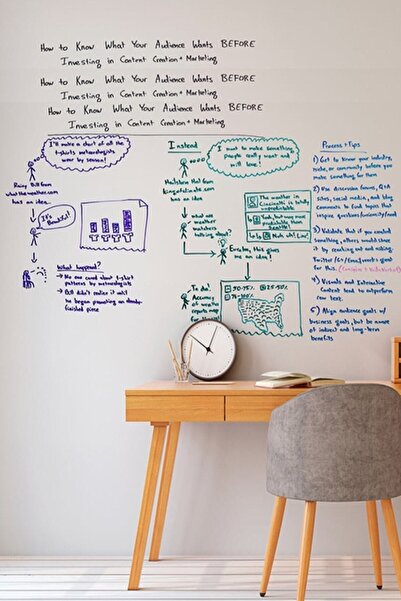 How to Know What Your Audience Wants BEFORE
Investing in Content Creation + Marketing
How to Know What Your Audience Wants BEFORE
Investing in Content Creation + Marketing
How to Know What Your Audience Wants BEFORE
Investing in Content Creation + Marketing
I'll make a chart of all the
t-shirts meteorologists
wear by season!
Rainy Bill from
whattheweather.com
has an idea...
It's Beautiful!
What happened?
→ No one cared about t-shirt
patterns by meteorologists
→ Bill didn't notice it until
he began promoting an already-
finished piece
Instead
I want to make something
people really want and
will love!
has an idea
what are
weather nerds
talking about?
The weather in
Cincinnati is totally
unpredictable
Nuh uh! Lies!
Eureka, this gives
me an idea!
To do:
Accuracy
Process + Tips
1) Get to know your industry,
niche, or community before you
make something for them
2) Use discussion forums, Q+A
sites, social media, and blog
comments to find topics that
inspire questions/curiosity/need
3) Validate that if you created
something, others would share
it by creating and asking.
for this.
4) Visuals and Interactive
Content tend to outperform
raw text.
5) Align audience goals w/
business goals, but be aware
of indirect and long-term
benefits